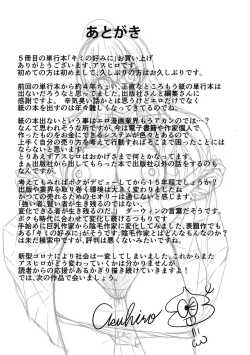 あとがき
５冊目の単行本「キミの好みに」お買い上げ
ありがとうございます。アスヒロです。
初めての方は初めまして、久しぶりの方はお久しぶりです。
前回の単行本から約４年ちょい、正直なところもう紙の単行本は
出ないだろうなと思ってました。出版社さんと編集さんに
感謝ですよ。
紙の本を出すのは年々難しくなってきてるので。
紙の本が出ないという事はエロ漫画業界もうアカンのでは…？
なんて思われそうな所ですが、今は電子書籍や作家個人で
作ったものをお金にできるシステムが色々とあるので
上手く自分の売り方を考えて行動すればそこまで困ったことには
ならないと思います！
とりあえずアスヒロはおかげさまで何とかなってます。
まぁ出版社から出してもらった本で出版社以外の話をするのも
なんですが。
考えてみればボクもデビューしてから１５年程でしょうか？
出版や業界を取り巻く環境は大きく変わりました。
かつての売れるためのセオリーは通じないと感じます。
「強い者、賢い者が生き残るのではない、
変化できる者が生き残るのだ」　ダーウィンの言葉だそうです。
ボクも時代に合わせて変化し続けるつもりです。
手始めに巨乳作家から陰毛作家に変化してみました。表題作でも
ある「キミの好みに」がそうです。陰毛作家とはどんなもんなのか？
は未だ模索中ですが、評判は悪くないみたいですね。
新型コロナにより社会は一変してしまいました。これからまた
アスヒロがどう変わっていくかは分かりませんが、
読者からの応援があるかぎり描き続けていきますよ！
では、次の作品で会いましょう。
Asuhiro